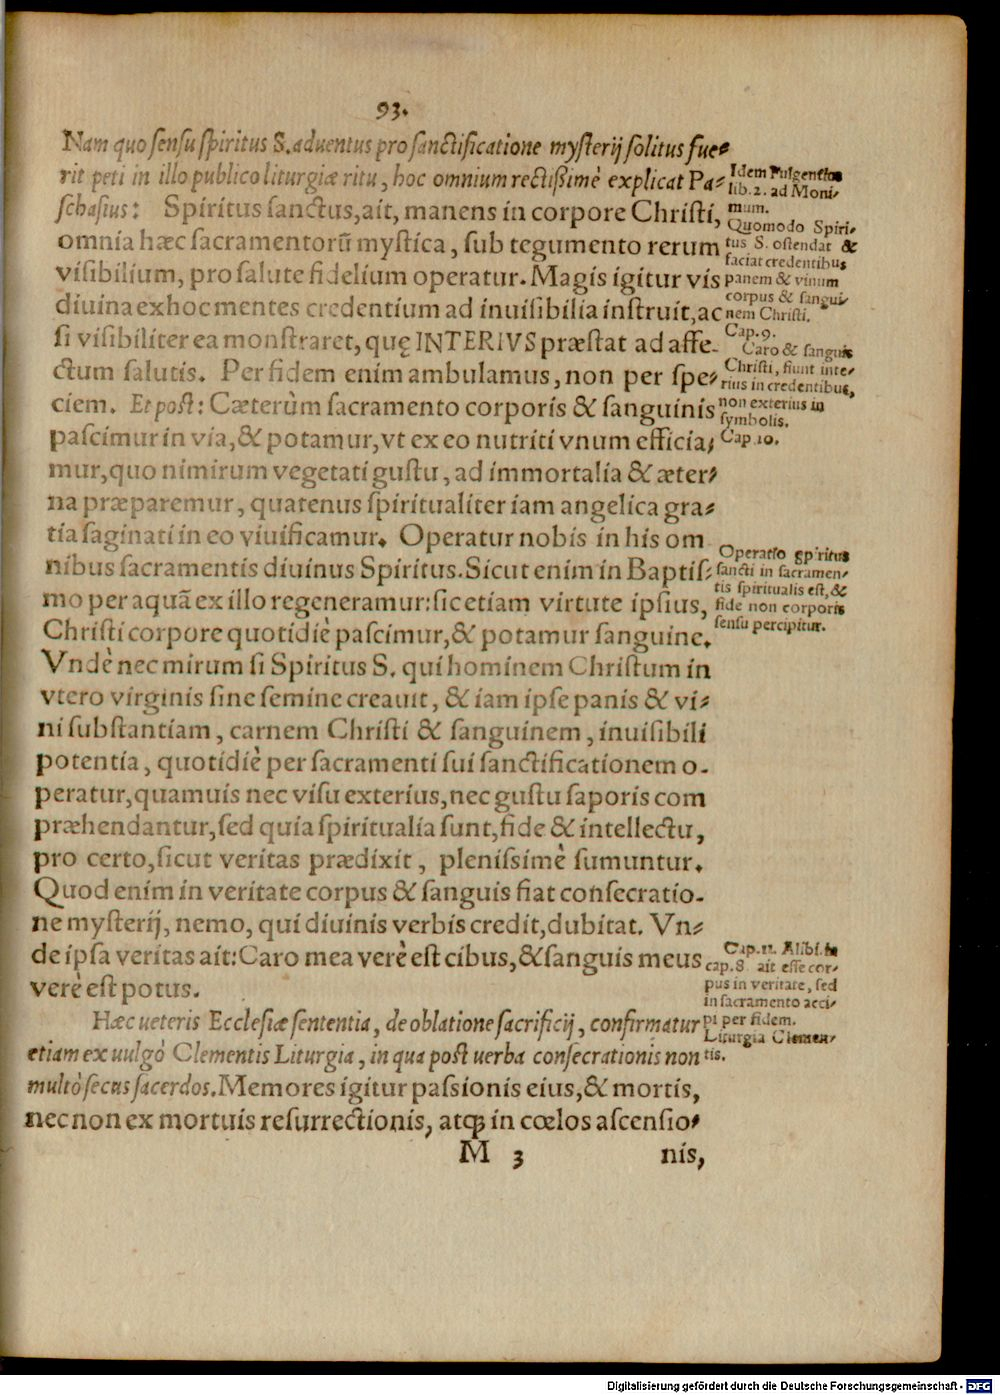 93.
Nam quo sensu spiritus S. aduentus pro sanctificatione mysterij solitus fue-
rit peti in illo publico liturgiæ ritu, hoc omnium rectißimè explicat Pa-
schasius: Spiritus sanctus, ait, manens in corpore Christi,
omnia hæc sacramentorũ mystica, sub tegumento rerum
visibilium, pro salute fidelium operatur. Magis igitur vis
diuina ex hoc mentes credentium ad inuisibilia instruit, ac
si visibiliter ea monstraret, quę INTERIVS præstat ad affe-
ctum salutis. Per fidem enim ambulamus, non per spe-
ciem. Et post: Cæterùm sacramento corporis & sanguinis
pascimur in via, & potamur, vt ex eo nutriti vnum efficia-
mur, quo nimirum vegetati gustu, ad immortalia & æter-
na præparemur, quatenus spiritualiter iam angelica gra-
tia saginati in eo viuificamur. Operatur nobis in his om
nibus sacramentis diuinus Spiritus. Sicut enim in Baptis-
mo per aquã ex illo regeneramur: sic etiam virtute ipsius,
Christi corpore quotidiè pascimur, & potamur sanguine.
Vndè nec mirum si Spiritus S. qui hominem Christum in
vtero virginis sine semine creauit, & iam ipse panis & vi-
ni substantiam, carnem Christi & sanguinem, inuisibili
potentia, quotidiè per sacramenti sui sanctificationem o-
peratur, quamuis nec visu exterius, nec gustu saporis com
præhendantur, sed quia spiritualia sunt, fide & intellectu,
pro certo, sicut veritas prædixit, plenissimè sumuntur.
Quod enim in veritate corpus & sanguis fiat consecratio-
ne mysterij, nemo, qui diuinis verbis credit, dubitat. Vn-
de ipsa veritas ait: Caro mea verè est cibus, & sanguis meus
verè est potus.
Hæc ueteris Ecclesiæ sententia, de oblatione sacrificij, confirmatur
etiam ex uulgò Clementis Liturgia, in qua post uerba consecrationis non
multò secus sacerdos. Memores igitur passionis eius, & mortis,
nec non ex mortuis resurrectionis, atq; in cœlos ascensio-
M 3 nis,
Idem Fulgentius
lib. 2. ad Moni-
mum.
Quomodo Spiri-
tus S. ostendat &
faciat credentibus
panem & vinum
corpus & sangui-
nem Christi.
Cap. 9.
Caro & sanguis
Christi, fiunt inte-
rius in credentibus,
non exterius in
symbolis.
Cap. 10.
Operatio spiritus
sancti in sacramen-
tis spiritualis est, &
fide non corporis
sensu percipitur.
Cap. 11. Alibi. in
cap. 8. ait esse cor-
pus in veritate, sed
in sacramento acci-
pi per fidem.
Liturgia Clemen-
tis.
Digitalisierung gefördert durch die Deutsche Forschungsgemeinschaft - DFG